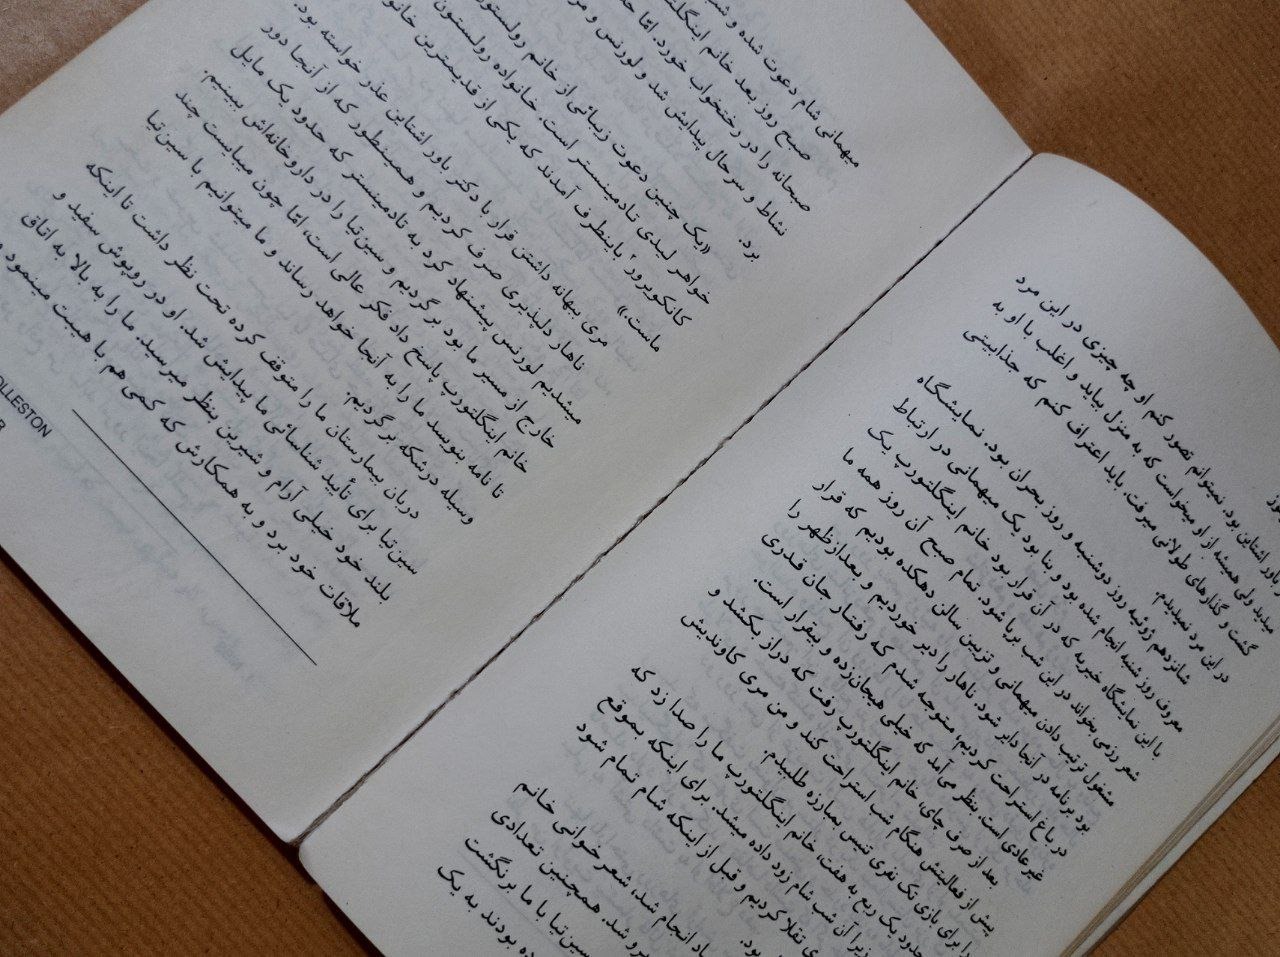 باور اشتاین بود. نمیتوانم تصور کنم او چه چیزی در این مرد
میدید ولی همیشه از او میخواست که به منزل بیاید و اغلب با او به
گشت و گذارهای طولانی میرفت. باید اعتراف کنم که جذابیتی
در این مرد نمیدیدم.
شانزدهم ژوئیه روز دوشنبه و روز بحران بود. نمایشگاه
معروف روز شنبه انجام شده بود و بنا بود یک میهمانی در ارتباط
با این نمایشگاه خیریه که در آن قرار بود خانم اینگلتورپ یک
شعر رزمی بخواند در این شب برپا شود. تمام صبح آن روز همه ما
مشغول ترتیب دادن میهمانی و تزیین سالن دهکده بودیم که قرار
بود برنامه در آنجا دایر شود. ناهار را دیر خوردیم و بعدازظهر را
در باغ استراحت کردیم، متوجه شدم که رفتار جان قدری
غیرعادی است. بنظر می‌آمد که خیلی هیجان‌زده و بیقرار است.
بعد از صرف چای، خانم اینگلتورپ رفت که دراز بکشد و
پیش از فعالیتش هنگام شب استراحت کند و من مری کاوندیش
را برای بازی تک نفری تنیس بمبارزه طلبیدم.
حدود یک ربع به هفت، خانم اینگلتورپ ما را صدا زد که
زیرا آن شب شام زود داده میشد. برای اینکه بموقع
تقلا کردیم و قبل از اینکه شام تمام شود
بود.
انجام شد، شعرخوانی خانم
برو شد. همچنین تعدادی
سین‌تیا با ما برنگشت
بودند به یک
میهمانی شام دعوت شده و
صبح روز بعد خانم
صبحانه را در رختخواب خورد، امّا
نشاط و سرحال پیدایش شد و لورنس و
برد.
«یک چنین دعوت زیبائی از خانم رولستون
خواهر لیدی تادمینستر است. خانواده رولستون
کانکویرور باینطرف آمدند که یکی از قدیمترین
ماست»
مری ببهانه داشتن قرار با دکتر باور اشتاین عذر خواسته بود.
ناهار دلپذیری صرف کردیم و همینطور که از آنجا دور
میشدیم لورنس پیشنهاد کرد به تادمینستر که حدود یک مایل
خارج از مسیر ما بود برگردیم و سین‌تیا را در داروخانه‌اش ببینیم.
خانم اینگلتورپ پاسخ داد فکر عالی است، امّا چون میبایست چند
تا نامه بنویسد ما را به آنجا خواهد رساند و ما میتوانیم با سین‌تیا
وسیله درشکه برگردیم.
دربان بیمارستان ما را متوقف کرده تحت نظر داشت تا اینکه
سین‌تیا برای تأیید شناسائی ما پیدایش شد. او در روپوش سفید و
بلند خود خیلی آرام و شیرین بنظر میرسید. ما را به بالا به اتاق
ملاقات خود برد و به همکارش که کمی هم با هیبت مینمود
OLLESTON